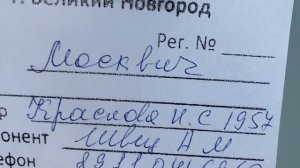 г. Великий Новгород
Рег. №
Москвич
р Краслова И.С 1957
понент Швец А М
ефон